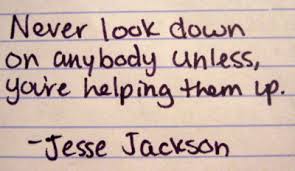 Never look down
on anybody unless,
you're helping them up.
-Jesse Jackson